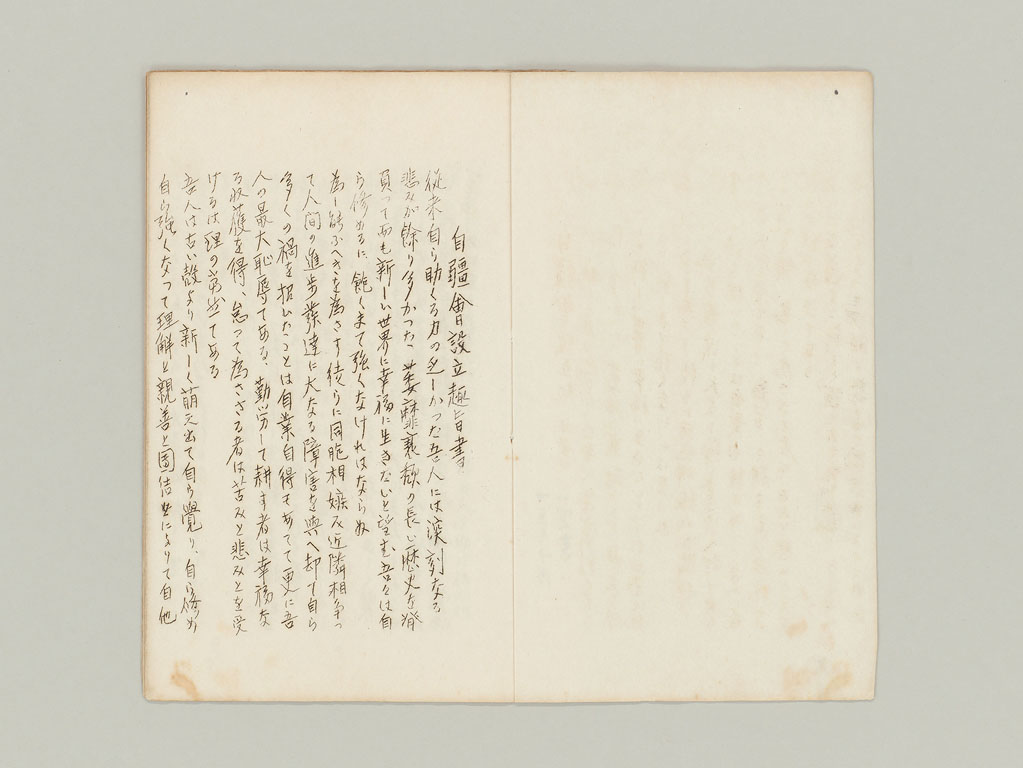 自疆會設立趣旨書
従来自ら助くる力の乏しかつた吾人には深刻なる
悲みが餘り多かつた、萎靡衰頽の長い歴史を背
負つて而も新しい世界に幸福に生きたいと望む吾々は自
ら修めるに、飽くまて強くなけれはならぬ
為し能ふへきを為さす徒らに同胞相嫉み近隣相争つ
て人間の進歩発達に大なる障害を與へ却て自ら
多くの禍を招いたことは自業自得てあつて更に吾
人の最大恥辱てある、勤労して耕す者は幸福な
る収獲を得、怠つて為さゝる者は苦みと悲みとを受
けるは理の当然てある
吾人は古い殻より新しく萌え出て自ら覺り、自ら修め
自ら強くなつて理解と親善と團結とによりて自他